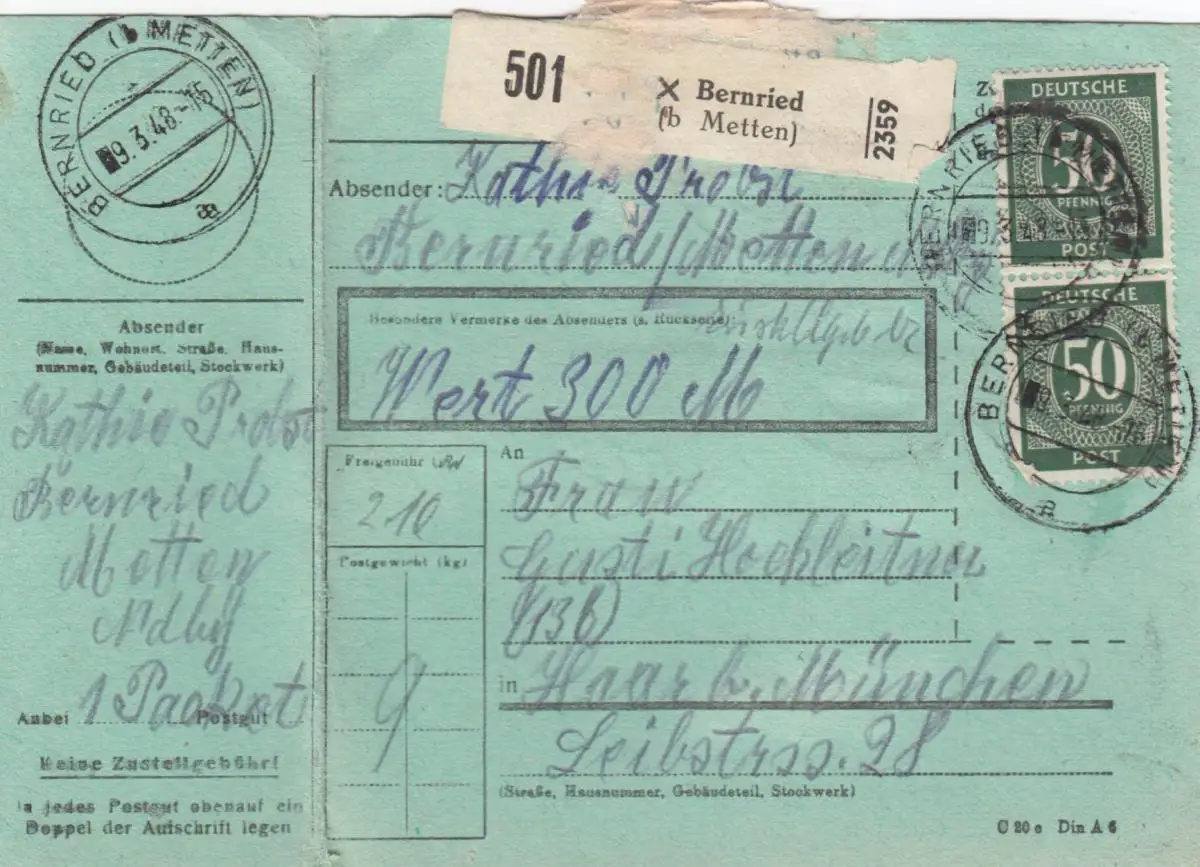 BERNRIED (b METTEN)
9.3.48-15
a
Absender
(Name, Wohnort, Straße, Haus-
nummer, Gebäudeteil, Stockwerk)
Kathie Probst
Bernried
Metten
Ndby
Anbei 1 Packet Postgut
Keine Zustellgebühr!
In jedes Postgut obenauf ein
Doppel der Aufschrift legen
501
Bernried
(b Metten)
2359
Absender: Kathie Probst
Bernried/Metten
Besondere Vermerke des Absenders (s. Rückseite):
Wert 300 M
Freigebühr
210
Postgewicht (kg)
9
An
Frau
Gusti Hochleitner
(13b)
in Haar b. München
Leibstrss. 28
(Straße, Hausnummer, Gebäudeteil, Stockwerk)
C 20 e Din A 6
DEUTSCHE
50
PFENNIG
POST
DEUTSCHE
50
PFENNIG
POST